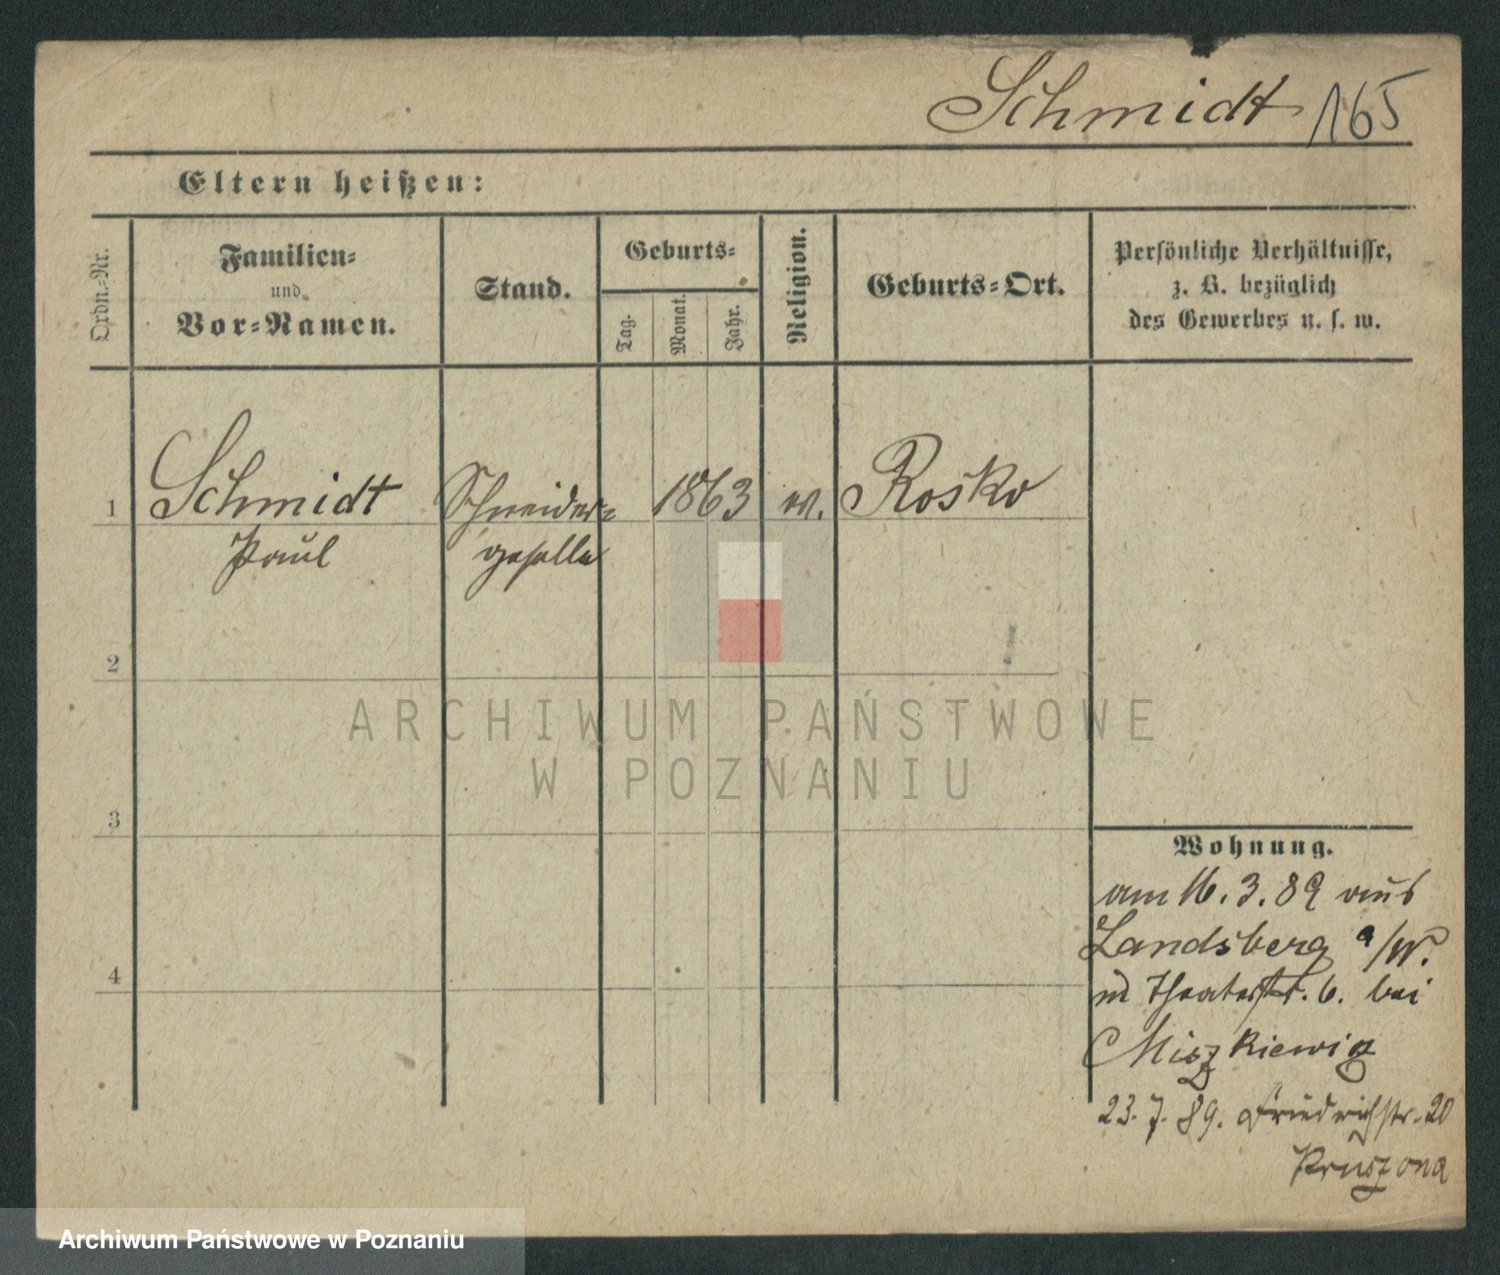 Schmidt 165
Eltern heißen:
Ordn.-Nr.
Familien-
und
Vor-Namen.
Stand.
Geburts-
Tag.
Monat.
Jahr.
Religion.
Geburts-Ort.
Persönliche Verhältnisse,
z. B. bezüglich
des Gewerbes u. s. w.
1 Schmidt Schneider- 1863 ev. Rosko
Paul geselle
2
ARCHIWUM PAŃSTWOWE
W POZNANIU
3
Wohnung.
am 16.3.89 aus
Landsberg a/W.
in Theaterstr. 6. bei
4
Miszkiewicz
23.7.89. Friedrichstr. 20
Kruszona
Archiwum Państwowe w Poznaniu